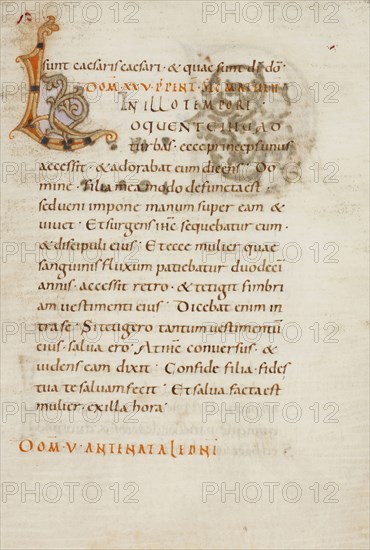 sunt caesaris caesari · & quae sunt dī dō ·
DOM · XXV · P PENT · SCDM MATHEŪ
IN ILLO TEMPORE
LOQUENTE IHU AD
turbas · ecce princeps unus
accessit · & adorabat eum dicens · Do
mine · filia mea modo defuncta est
sed veni impone manum super eam &
vivet · Et surgens ihc sequebatur eum ·
& discipuli eius · Et ecce mulier quae
sanguinis fluxum patiebatur duodecī
annis · accessit retro · & tetigit fimbri
am vestimenti eius · Dicebat enim in
tra se · Si tetigero tantum vestimentū
eius · salva ero · At ihc conversus · &
videns eam dixit · Confide filia · fides
tua te salvam fecit · Et salva facta est
mulier · ex illa hora ·
DOM · V · ANTE NATALE DNI
PHOTO 12